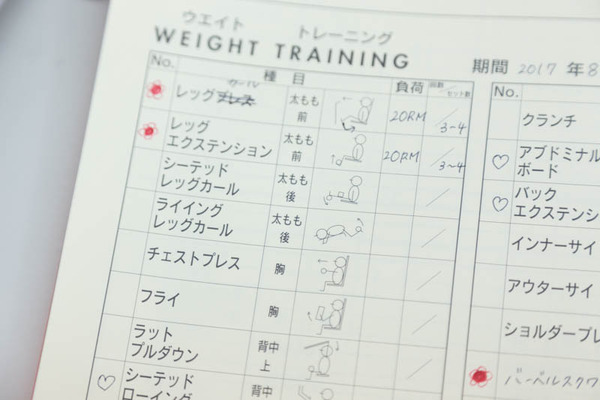 ウエイト トレーニング
WEIGHT TRAINING
期間 2017 年 8
No. 種目 負荷 回数/セット数
レッグプレス カール 太もも前 20RM 3-4
レッグエクステンション 太もも前 20RM 3~4
シーテッドレッグカール 太もも後
ライイングレッグカール 太もも後
チェストプレス 胸
フライ 胸
ラットプルダウン 背中上
シーテッドローイング 背中
No.
クランチ
アブドミナル
ボード
バック
エクステンシ
インナーサイ
アウターサイ
ショルダープレ
バーベルスクワ